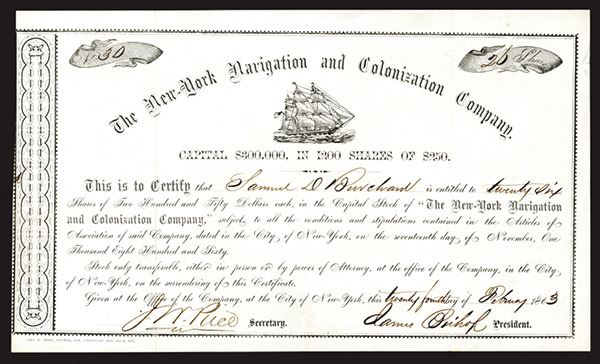 No. 30
26 Shares
The New-York Navigation and Colonization Company.
CAPITAL $300,000, IN 1200 SHARES OF $250.
This is to Certify that Samuel D Burchard is entitled to twenty Six
Shares of Two Hundred and Fifty Dollars each, in the Capital Stock of "The New-York Navigation
and Colonization Company," subject to all the conditions and stipulations contained in the Articles of
Association of said Company, dated in the City of New-York, on the seventeenth day of November, One
Thousand Eight Hundred and Sixty.
Stock only transferable, either in person or by power of Attorney, at the office of the Company, in the City
of New-York, on the surrendering of this Certificate.
Given at the Office of the Company, at the City of New-York, this twenty fourth day of February 1863
Secretary.
James Bishop President.